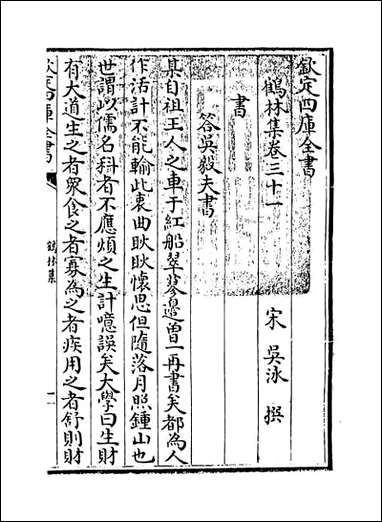 欽定四庫全書
鶴林集卷三十一
宋 吳泳 撰
書
答吳毅夫書
某自祖王人之車于紅船翠蓼邊曽一再書矣都為人
作活計不能輸此衷曲耿耿懐思但隨落月照鍾山也
世謂以儒名科者不應煩之生計噫誤矣大學曰生財
有大道生之者衆食之者寡為之者疾用之者舒則財
欽定四庫全書
鶴林集
一